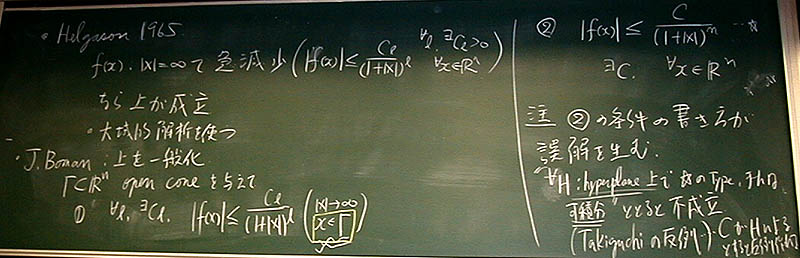 • Helgason 1965.
f(x). |x|=∞で 急減少 (|f(x)| ≤ Cℓ/(1+|x|)^ℓ ∀ℓ, ∃Cℓ>0 ∀x∈ℝⁿ)
なら 上が成立
• 大域的解析を使う
• J. Boman : 上を一般化
Γ⊂ℝⁿ open cone を与えて
① ∀ℓ, ∃Cℓ, |f(x)| ≤ Cℓ/(1+|x|)^ℓ (|x|→∞ x∈Γ)
② |f(x)| ≤ C/(1+|x|)ⁿ
∃C, ∀x∈ℝⁿ
注 ②の条件の書き方が
誤解を生む.
"∀H : hyperplane 上で のType,
可積分" ととると 不成立
(Takiguchi の反例)